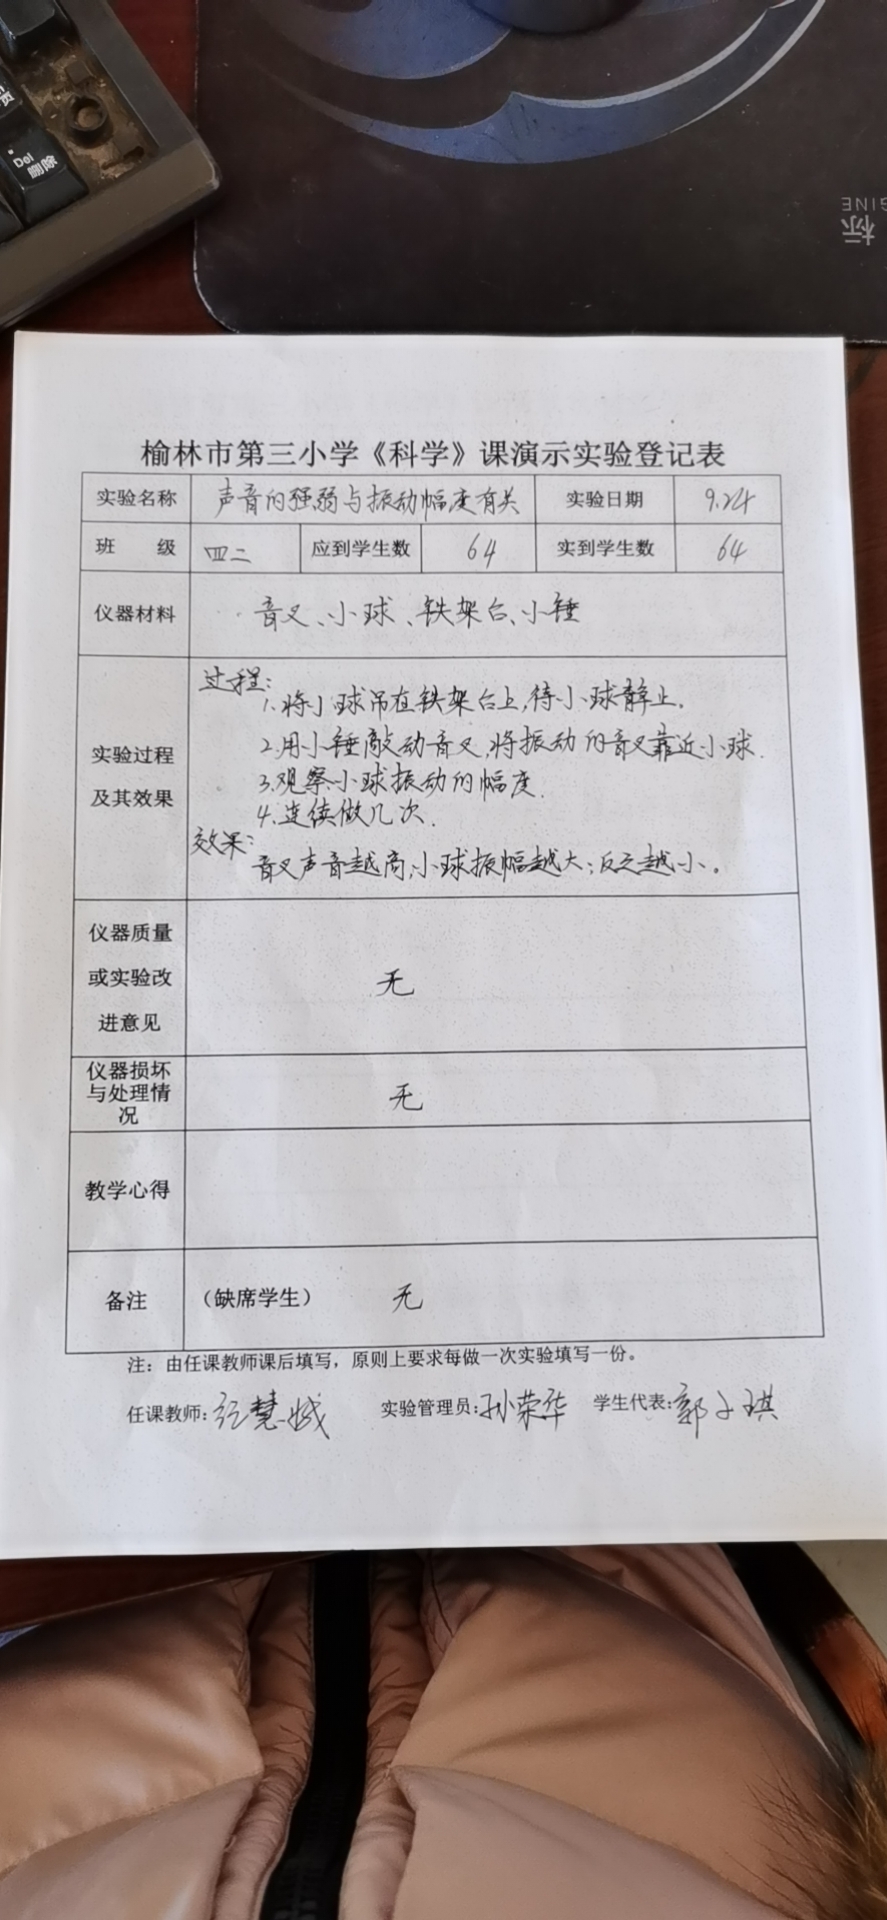 Del
删除
标
榆林市第三小学《科学》课演示实验登记表
实验名称 声音的强弱与振动幅度有关 实验日期 9.24
班 级 四二 应到学生数 64 实到学生数 64
仪器材料 音叉、小球、铁架台、小锤
过程:
1.将小球吊在铁架台上,待小球静止.
2.用小锤敲动音叉,将振动的音叉靠近小球.
3.观察小球振动的幅度.
4.连续做几次.
实验过程
及其效果
效果:
音叉声音越高,小球振幅越大;反之越小。
仪器质量
或实验改
进意见
无
仪器损坏
与处理情
况
无
教学心得
备注 (缺席学生) 无
注：由任课教师课后填写，原则上要求每做一次实验填写一份。
任课教师: 实验管理员:孙荣华 学生代表:郭子琪